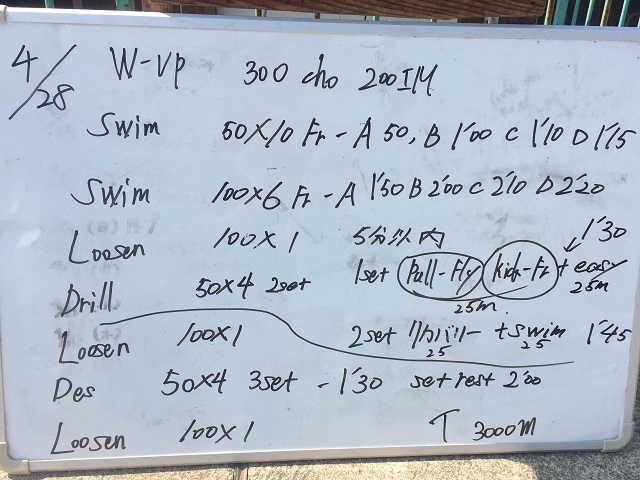 4/28 W-up 300 cho 200IM
Swim 50×10 Fr - A 50, B 1'00 C 1'10 D 1'15
Swim 100×6 Fr - A 1'50 B 2'00 C 2'10 D 2'20
Loosen 100×1 5分以内 1'30
Drill 50×4 2set 1set Pull-Fly Kick-Fr + easy
25m 25m
Loosen 100×1 2set リカバリー + swim 1'45
25 25
Des 50×4 3set - 1'30 set rest 2'00
Loosen 100×1 T 3000m